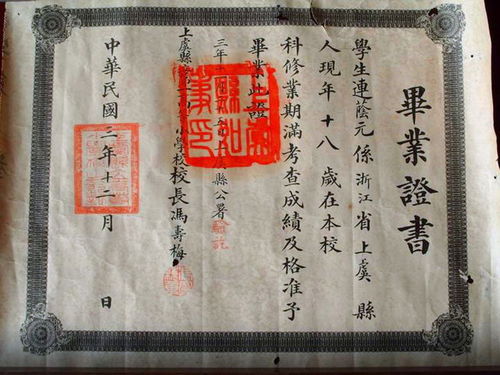 畢業證書
學生連蔭元係浙江省上虞縣
人現年十八歲在本校
科修業期滿考查成績及格准予
畢業此證
三年十二月 上虞縣公署驗訖
上虞縣 小學校校長馮壽梅
中華民國三年十二月 日